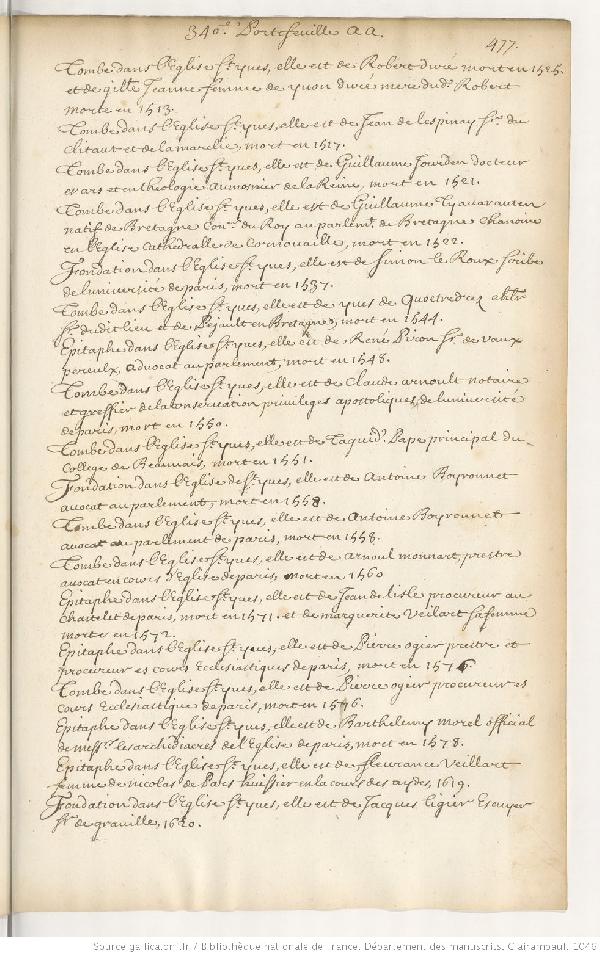 34e. Portefeuille AA.
477.
Tombe dans l'Eglise St. yves, elle est de Robert divré mort en 1525.
et de Jeanne femme de yvon divré mere dudt. Robert
morte en 1513.
Tombe dans l'Eglise St. yves, elle est de Jean de Lespinay Sr. du
Clitaut et de la marelie, mort en 1517.
Tombe dans l'Eglise St. yves, elle est de Guillaume Jourden docteur
es ars et en theologie aumosnier de la Reine, mort en 1521.
Tombe dans l'Eglise St. yves, elle est de Guillaume
natif de Bretagne Conr. du Roy au parlemt. de Bretagne Chanoine
en l'Eglise Cathedralle de Cornouaille, mort en 1522.
Fondation dans l'Eglise St. yves, elle est de Simon le Roux scribe
de l'université de paris, mort en 1537.
Tombe dans l'Eglise St. yves, elle est de yves de
Sr. dudit lieu et de en Bretagne, mort en 1544.
Epitaphe dans l'Eglise St. yves, elle est de René Piron Sr. de vaux
pereulx, advocat au parlement, mort en 1548.
Tombe dans l'Eglise St. yves, elle est de Claude arnoult notaire
et greffier de la conservation privileges apostoliques, de l'université
de paris, mort en 1550.
Tombe dans l'Eglise St. yves, elle est de Pape principal du
College de Beauvais, mort en 1551.
Fondation dans l'Eglise de St. yves, elle est de Antoine Boyronnet
avocat au parlement, mort en 1558.
Tombe dans l'Eglise St. yves, elle est de Antoine Boyronnet
avocat au parlement de paris, mort en 1558.
Tombe dans l'Eglise St. yves, elle est de arnoul monnart, prestre
avocat en cours d'Eglise de paris, mort en 1560
Epitaphe dans l'Eglise St. yves, elle est de Jean de lisle procureur au
chastelet de paris, mort en 1571. et de marguerite Veilart sa femme
morte en 1572.
Epitaphe dans l'Eglise St. yves, elle est de Pierre ogier prestre et
procureur es cours Ecclesiastiques de paris, mort en 1576
Tombe dans l'Eglise St. yves, elle est de Pierre ogier procureur es
cours Ecclesiastique de paris, mort en
Epitaphe dans l'Eglise St. yves, elle est de Barthelemy morel official
de messrs. les archediacres de l'Eglise de paris, mort en 1578.
Epitaphe dans l'Eglise St. yves, elle est de fleurance Veillart
femme de nicolas de Pars huissier en la cours des aydes, 1619.
Fondation dans l'Eglise St. yves, elle est de Jacques ligier Escuyer
Sr. de graville, 1620.
Source gallica.bnf.fr / Bibliothèque nationale de France. Département des manuscrits. Clairambault 1046